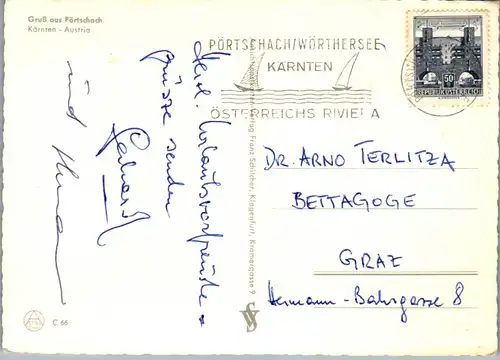 Gruß aus Pörtschach
Kärnten - Austria
PÖRTSCHACH/WÖRTHERSEE
KÄRNTEN
ÖSTERREICHS RIVIERA
50
REPUBLIK ÖSTERREICH
Herzl. Urlaubsvorfreude-
grüsse senden
Gerhard
und
Franz Schilcher, Klagenfurt, Kramergasse 9
DR. ARNO TERLITZA
BETTAGOGE
GRAZ
Hermann-Bahrgasse 8
C 66